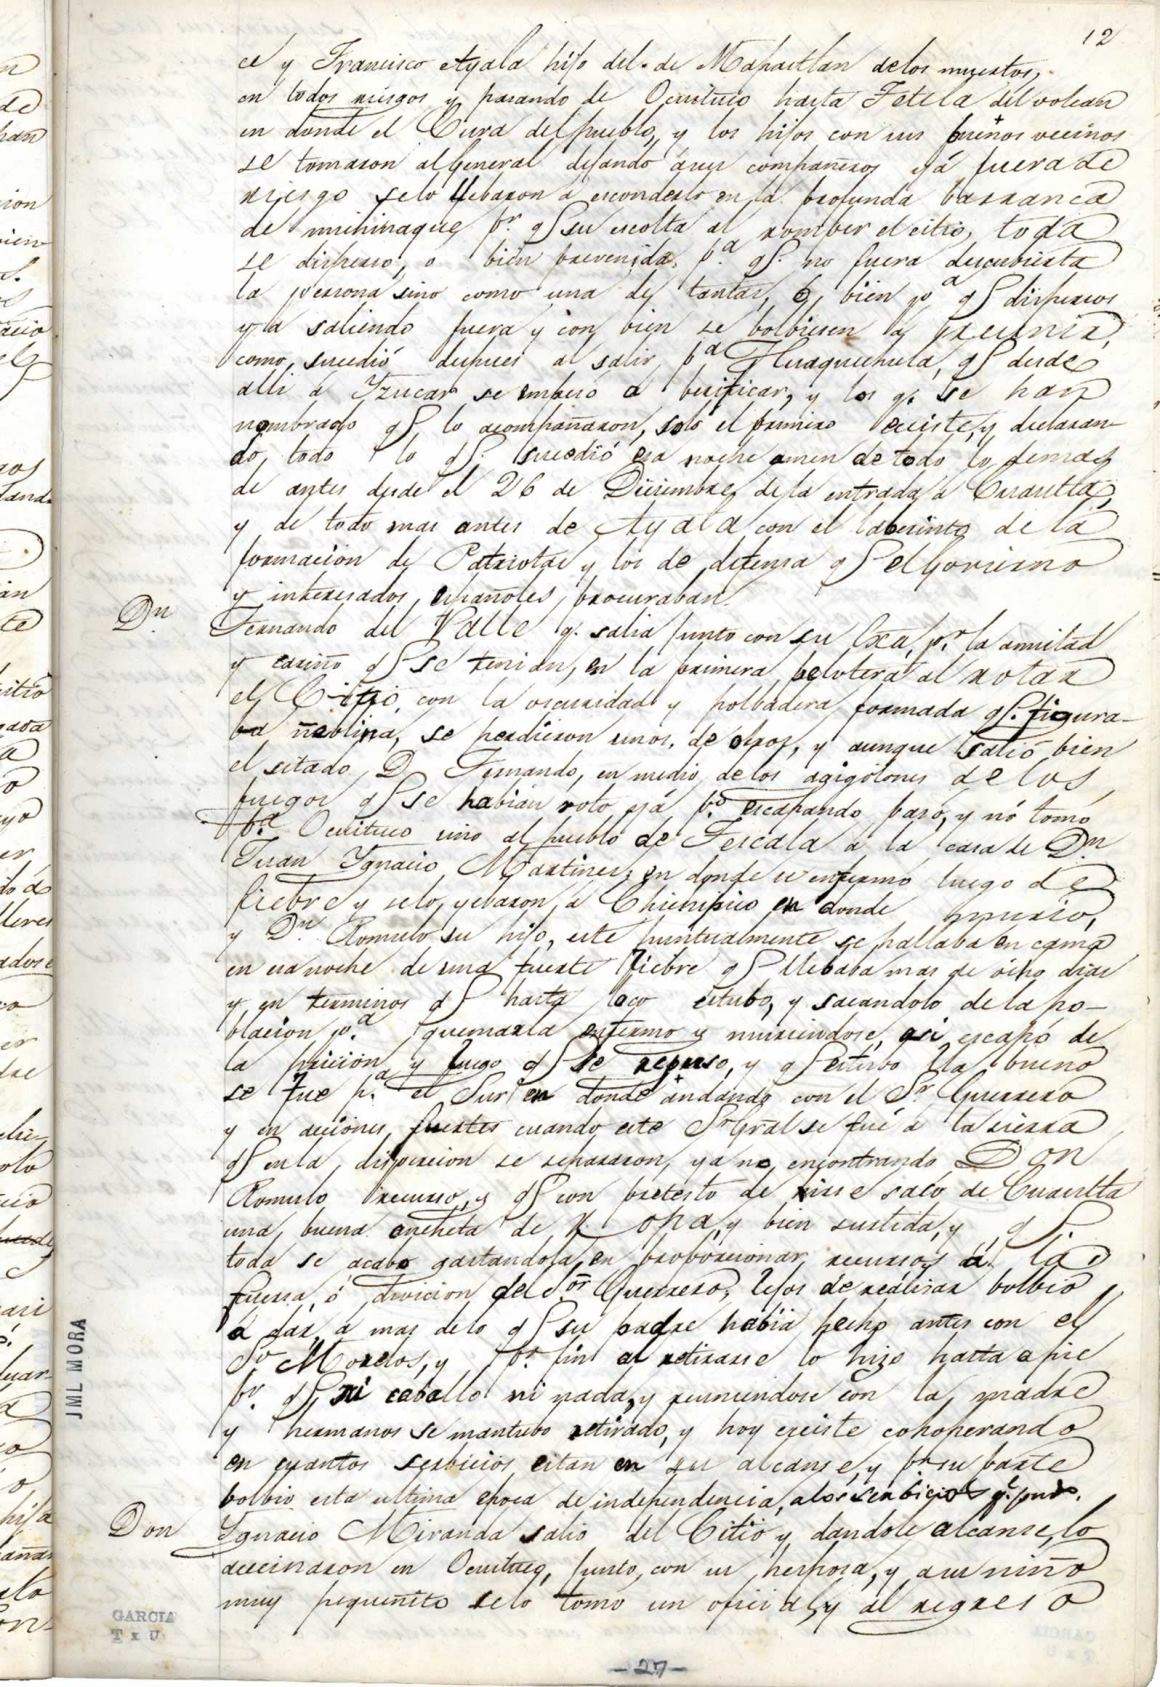 12
ce y Francisco Ayala hijo del de Mapaztlan de los muertos,
en todos riesgos y pasando de Ocuituco hasta Tetela del volcan
en donde el Cura del pueblo, y los hijos con sus buenos vecinos
se tomaron al General dejando á sus compañeros yá fuera de
riesgo se lo llebaron á esconderlo en la profunda barranca
de mihinaque, pr. q su escolta al romber el citio, toda
se disperso, o bien prevenida, pa. q no fuera descubierta
la persona sino como una de tantas, o, bien pa q dispersos
y a saliendo fuera y con bien se bolbiesen á reunir,
como, sucedió despues al salir, pa Huaquechula, q desde
alli á Yzucar se empeso a berificar, y los q. se han
nombrado q lo acompañaron, solo el primero eciste, y declaran-
do, todo lo q. sucedió esa noche amen de todo lo demas
de antes desde el 26 de Diciembre, de la entrada á Cuautla,
y de todo mas antes de Ayala con el laberinto de la
formacion de Patriotas y los de defensa q el Govierno
y interesados, españoles, procuraban.
Dn Fernando del Valle q. salia junto con su Exa, pr. la amistad
y cariño q se tenian, en la primera pelotera al rotar
el Citio, con la oscuridad y polbadera formada q. figura-
ba ñeblina, se perdieron unos, de otros, y aunque salió bien
el sitado, D. Fernando, en medio, de los agigolones de los
fuegos q se habián roto yá pr. escapando pasó, y nó tomó
pa. Ocuituco sino al pueblo de Tescala á la casa de Dn
Juan Ygnacio Martines, en donde se enfermo luego de
fiebre y se lo, yebaron, á Chicipico en donde murio,
y Dn Romulo su hijo, este puntualmente se hallaba en cama
en esa noche de una fuerte fiebre q llebaba mas de ocho dias
y, en terminos q hasta loco estubo, y sacandolo de la po-
blacion pa. quemarla enfermo y muriendose, asi escapó de
la pricion y luego q se repuso, y q estubo ya bueno
se fue pa. el Sur en donde andando con el Sr Guerrero
y en acciones, fuertes cuando este Sr Gral se fué á la sierra
q en la dispercion se separaron, ya no, encontrando Don
Romulo recurso, y q con pretesto de irse saco de Cuautla
una, buena ancheta de ropa, y bien surtida, y, q
toda se acabo gastandola, en proporcionar recursos á la
fuersa, ó divicion del Sor Guerrero, lejos de realisar bolbio
a dar, á mas de lo q su padre habia hecho antes con el
Sor Morelos, y pr. fin al retirarse lo hizo hasta á pie
pr. q ni caballo ni nada, y reuniendose con la madre
y hermanos se mantubo retirado, y hoy eciste cohoperando
en cuantos serbicios estan en su alcanse, y pr su parte
bolbio esta ultima epoca de independencia, a los serbicios q. pudo.
Don Ygnacio Miranda salio del Citio y, dandole alcanse, lo
acecinaron en Ocuituco, junto, con su hesposa, y, a su niño
muy pequeñito se lo tomo un oficial, y al regreso
JML MORA
GARCIA
T x U
- 27 -